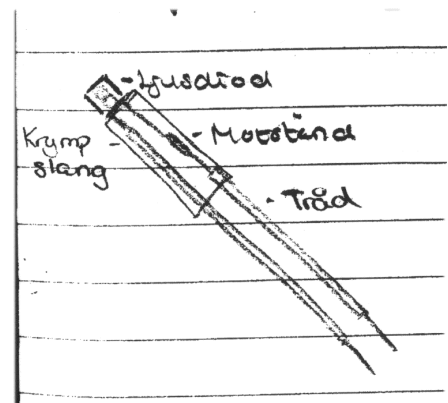 Ljusdiod
Krymp
slang
Motstånd
Tråd